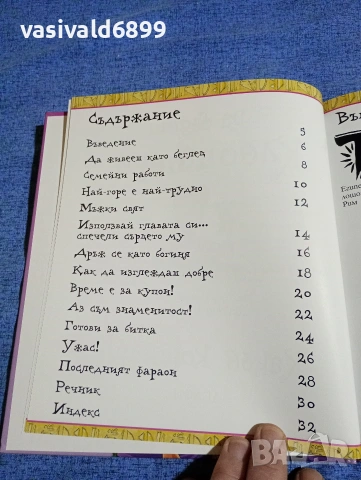 vasivald6899
Съдържание
Въведение 5
Да живееш като беглец 6
Семейни работи 8
Най-горе е най-трудно 10
Мъжки свят 12
Използвай главата си...
спечели сърцето му 14
Дръж се като богиня 16
Как да изглеждам добре 18
Време е за купон! 20
Аз съм знаменитост! 22
Готови за битка 24
Ужас! 26
Последният фараон 28
Речник 30
Индекс 32
Във
Египе
Рим
BAZAR